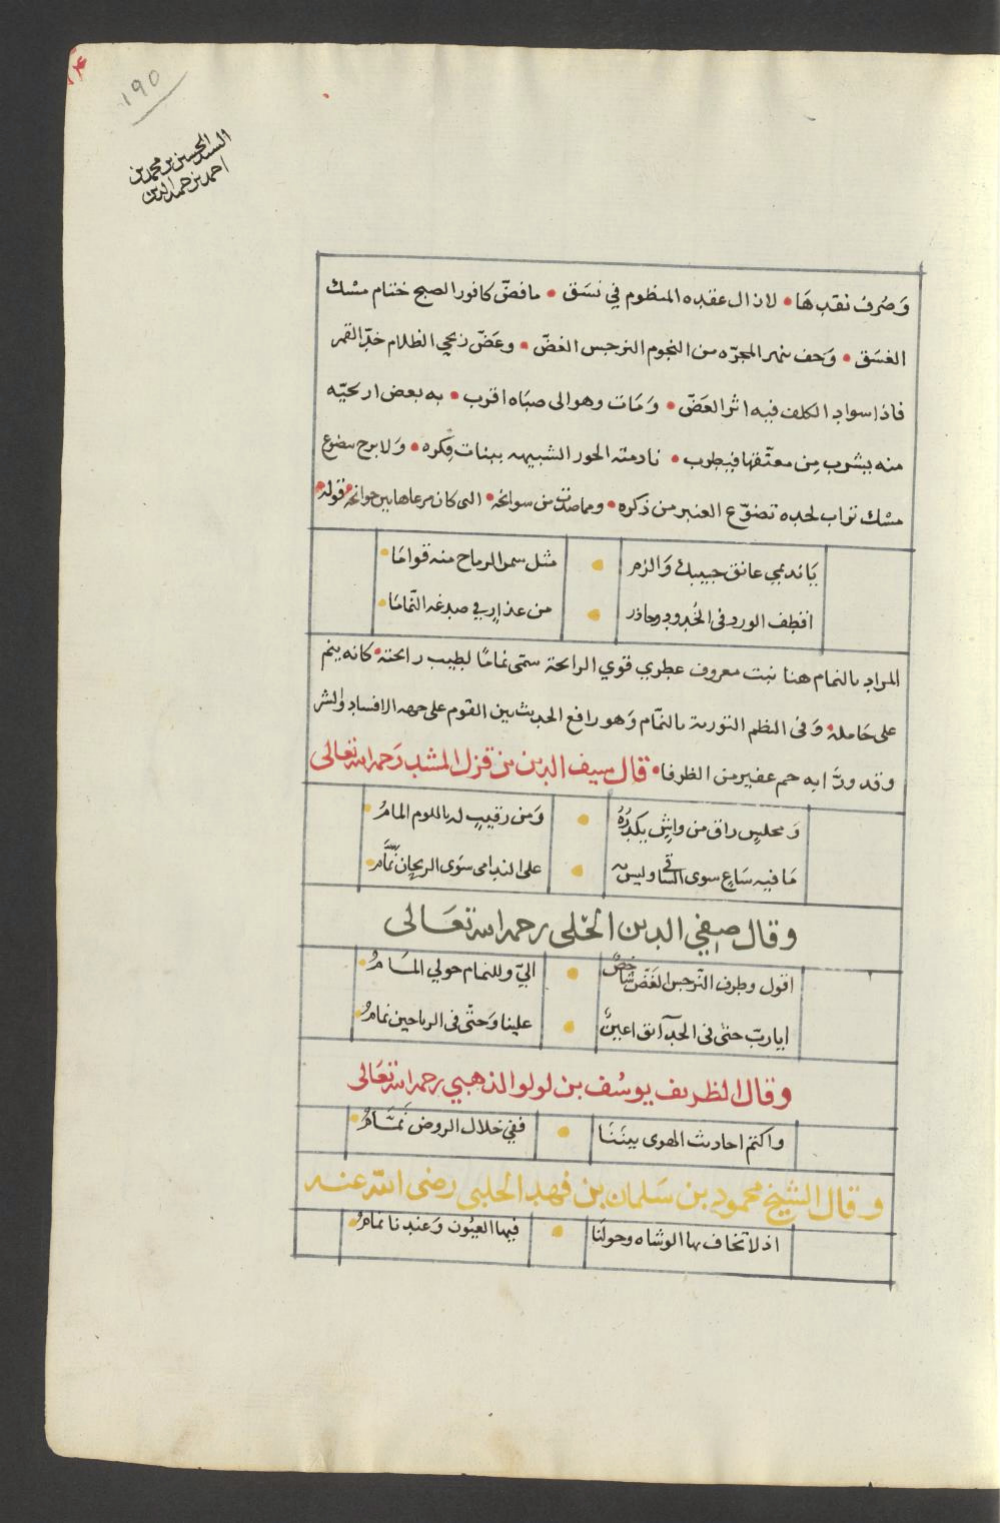 ١٩٥
السيد الحسن بن محمد بن
احمد بن حميد الدين
وَصُرف نقدهَا • لازال عقده المنظوم في نسَق • مافضّ كافور الصبح ختام مسك
الغسَق • وَحف نهر المجرّه من النجوم النرجس الغضّ • وعَضّ زنجي الظلام خدّ القمر
فاذا سواد الكلف فيه اثر العَضّ • وَمَات وهو الى صبَاه اقرب • به بعض اريحيّه
منه يشرب مِن معتّقها فيطرب • نادمته الحور الشبيهه ببنات فِكره • وَلا برح يضوع
مسك تراب لحده تضوّع العنبر من ذكره • ومما صدت من سوانحه • التي كان مرعاها بين جوانحه • قوله •
يَا نديمي عانق حبيبك وَالزم • مثل سمر الرماح منه قوامَا •
اقطف الورد فى الخُدود وحاذر • من عذارٍ في صدغه النّمامَا •
المراد بالنمام هنا نبت معروف عطري قوي الرائحة سمّى نمامًا لطيب رائحته • كانه ينم
على حَامله • وَفى النظم التورية بالنمّام وَهو رافع الحديث بين القوم على جهه الافساد والشر
وقد ورَّا به جم غفير من الظرفا • قال سيف الدين بن قزل المشد رَحمه الله تعالى
وَمجلسٍ راق من واشٍ يكدّرُهُ • وَمن رقيبٍ له باللوم المامُ •
مَا فيه سَاعٍ سوى السّاقي وليس به • على الندامى سوَى الريحان نمَّام •
وقال صفي الدين الحلّى رحمه الله تعَالى
اقول وطرف النّرجس الغَضّ شاخصٌ • اليّ وللنمام حولي المَامُ •
ايا ربّ حتىٰ فى الحدآئق اعينٌ • علينا وَحتّى فى الرياحين نمامُ •
وقال الظريف يوسُف بن لولو الذهبي رحمه الله تعَالى
واكتم احاديث الهوى بينَنَا • ففي خلال الروض نَمَّامُ •
وقال الشيخ محمود بن سَلمان بن فهد الحلبي رضى الله عنه
اذ لا تخاف بها الوشاه وحولنَا • فيها العيُون وَعندنا نمامُ •